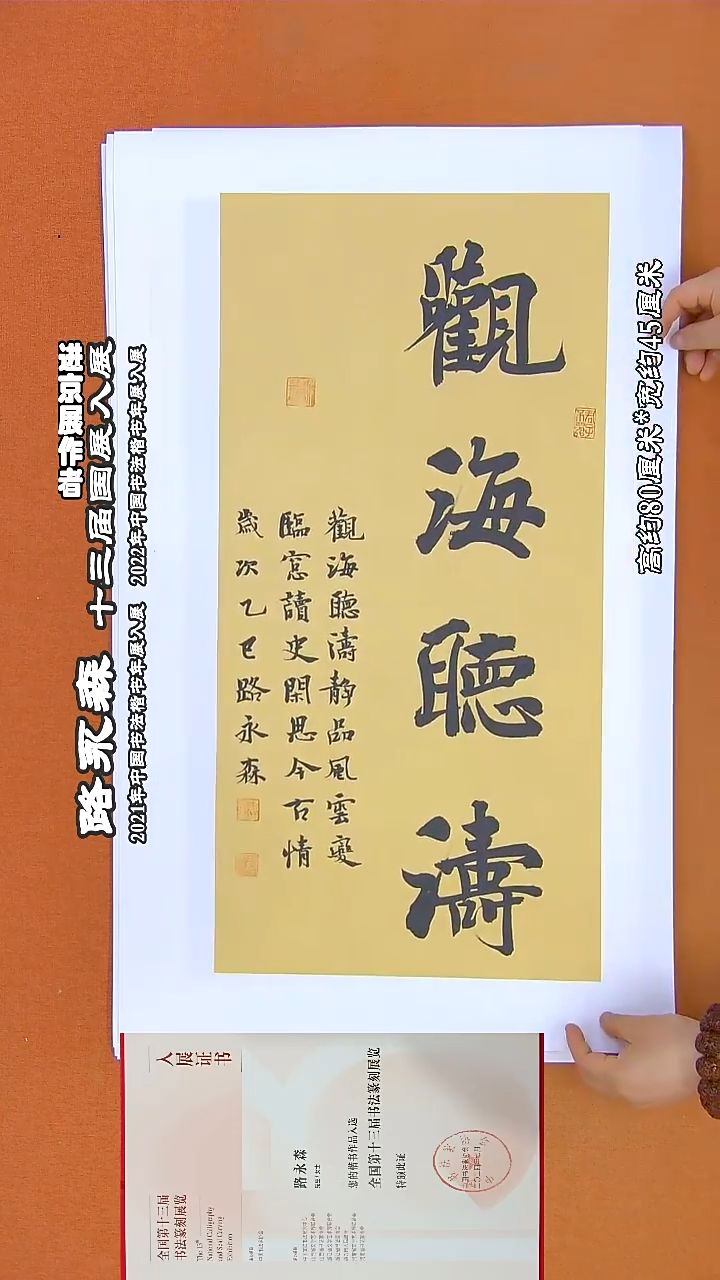 觀海聽濤
觀海聽濤靜品風雲變
臨窓讀史閑思今古情
歲次乙巳路永森
高约80厘米*宽约45厘米
路永森 十三届国展入展
2021年中国书法楷书年展入展 2022年中国书法楷书年展入展
全国第十三届
书法篆刻展览
The 13th
National Calligraphy
and Seal Carving
Exhibition
入展证书
路永森
您的楷书作品入选
全国第十三届书法篆刻展览
特颁此证